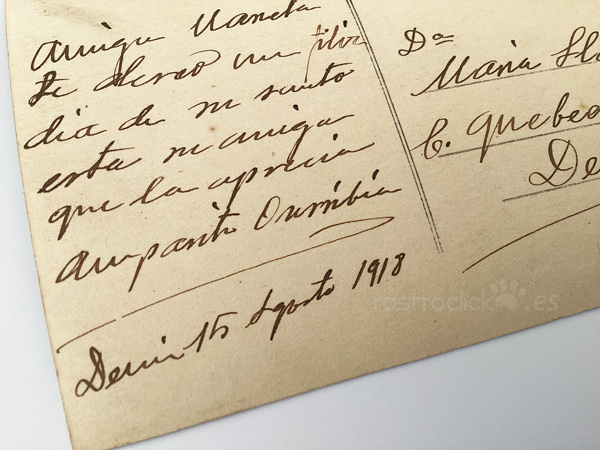 amiga Maneta
te deseo un feliz
dia de su santo
esta su amiga
que la aprecia
Amparito
Denia 15 Agosto 1918
Dª
Maria
C. Quebe
De
rastrodick .es